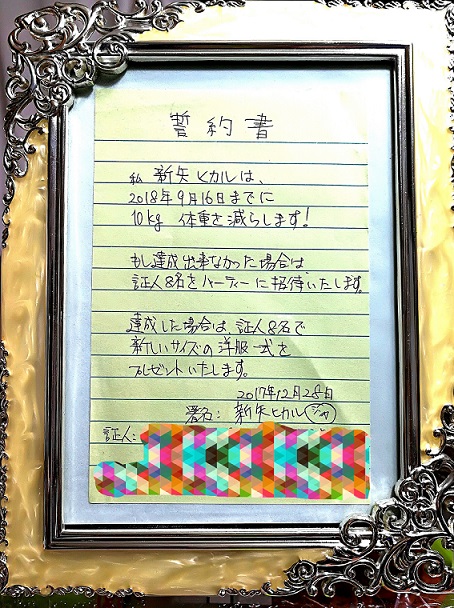 誓約書
私 新矢ヒカルは、
2018年9月16日までに
10kg 体重を減らします!
もし達成出来なかった場合は
証人8名をパーティーに招待いたします。
達成した場合は、証人8名で
新しいサイズの洋服一式を
プレゼントいたします。
2017年12月28日
署名: 新矢ヒカル
証人: